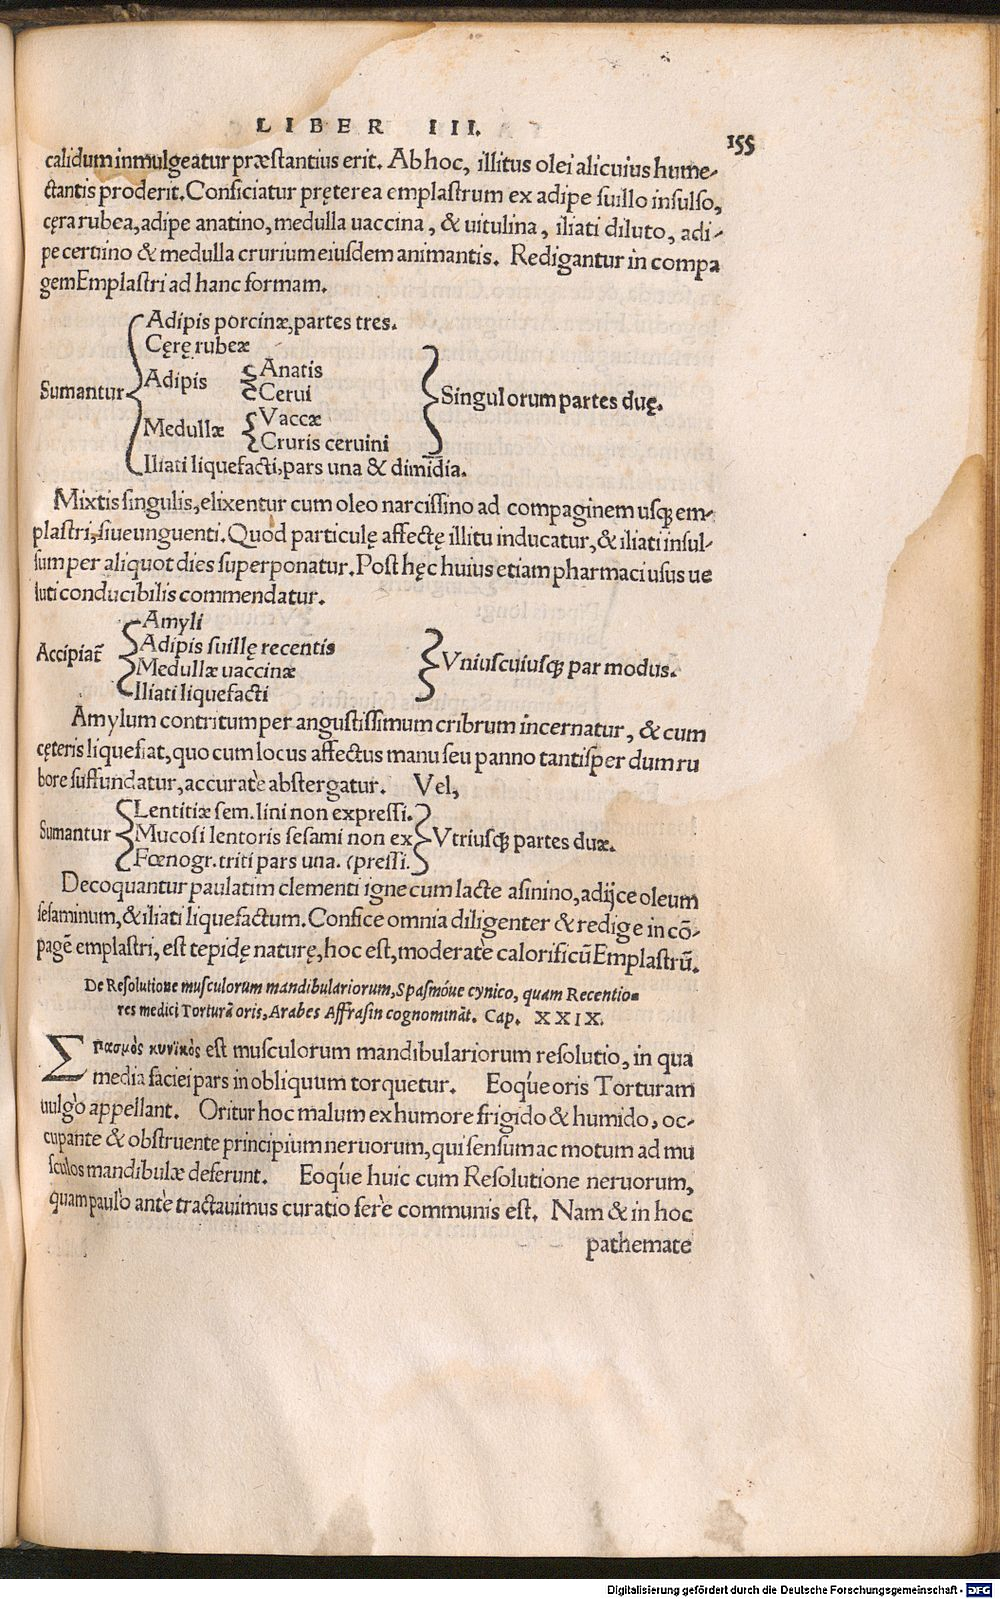 LIBER III. 155
calidum inmulgeatur præstantius erit. Ab hoc, illitus olei alicuius hume-
ctantis proderit. Conficiatur pręterea emplastrum ex adipe suillo insulso,
cęra rubea, adipe anatino, medulla uaccina, & uitulina, iliati diluto, adi-
pe ceruino & medulla crurium eiusdem animantis. Redigantur in compa
gem Emplastri ad hanc formam.
Adipis porcinæ, partes tres.
Cęrę rubeæ
Sumantur Adipis Anatis
Cerui Singulorum partes duę.
Medullæ Vaccæ
Cruris ceruini
Iliati liquefacti, pars una & dimidia.
Mixtis singulis, elixentur cum oleo narcissino ad compaginem usqꝫ em-
plastri, siue unguenti. Quod particulę affectę illitu inducatur, & iliati insul-
sum per aliquot dies superponatur. Post hęc huius etiam pharmaci usus ue
luti conducibilis commendatur.
Amyli
Accipiat̃ Adipis suillę recentis
Medullæ uaccinæ Vniuscuiusqꝫ par modus.
Iliati liquefacti
Amylum contritum per angustissimum cribrum incernatur, & cum
cęteris liquefiat, quo cum locus affectus manu seu panno tantisper dum ru
bore suffundatur, accuratè abstergatur. Vel,
Lentitiæ sem. lini non expressi.
Sumantur Mucosi lentoris sesami non ex Vtriusqꝫ partes duæ.
Fœnogr. triti pars una. (pressi.
Decoquantur paulatim clementi igne cum lacte asinino, adijce oleum
sesaminum, & iliati liquefactum. Confice omnia diligenter & redige in cõ-
pagẽ emplastri, est tepidę naturę, hoc est, moderatè calorificũ Emplastrũ.
De Resolutione musculorum mandibulariorum, Spasmóue cynico, quam Recentio=
res medici Torturã oris, Arabes Affrasin cognominãt. Cap. XXIX.
Σπασμὸς κυνικὸς est musculorum mandibulariorum resolutio, in qua
media faciei pars in obliquum torquetur. Eoq́ue oris Torturam
uulgò appellant. Oritur hoc malum ex humore frigido & humido, oc-
cupante & obstruente principium neruorum, qui sensum ac motum ad mu
sculos mandibulæ deferunt. Eoq́ue huic cum Resolutione neruorum,
quam paulò antè tractauimus curatio ferè communis est. Nam & in hoc
pathemate
Digitalisierung gefördert durch die Deutsche Forschungsgemeinschaft - DFG